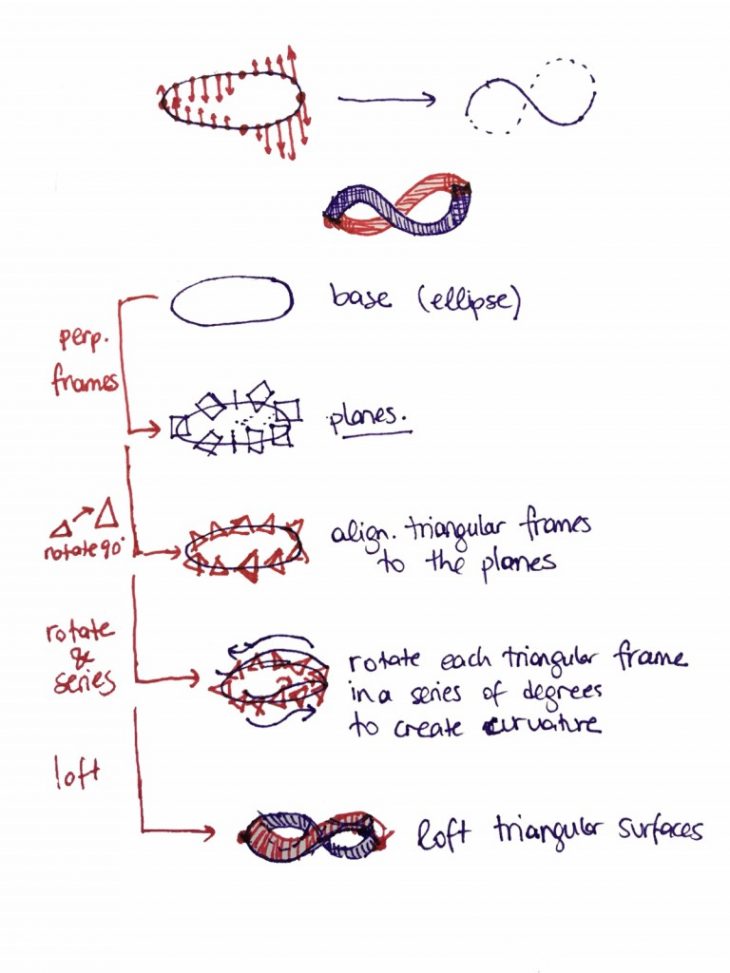 base (ellipse)
perp.
frames
planes.
rotate 90°
align. triangular frames
to the planes
rotate
&
series
rotate each triangular frame
in a series of degrees
to create curvature
loft
loft triangular surfaces